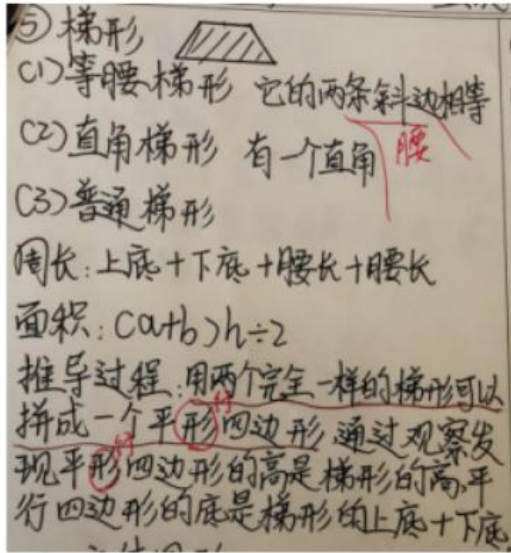 ⑤梯形
(1)等腰梯形 它的两条斜边相等
腰
(2)直角梯形 有一个直角
(3)普通梯形
周长:上底+下底+腰长+腰长
面积:(a+b)h÷2
推导过程:用两个完全一样的梯形可以
行
拼成一个平形四边形,通过观察发
行
现平形四边形的高是梯形的高,平
行四边形的底是梯形的上底+下底